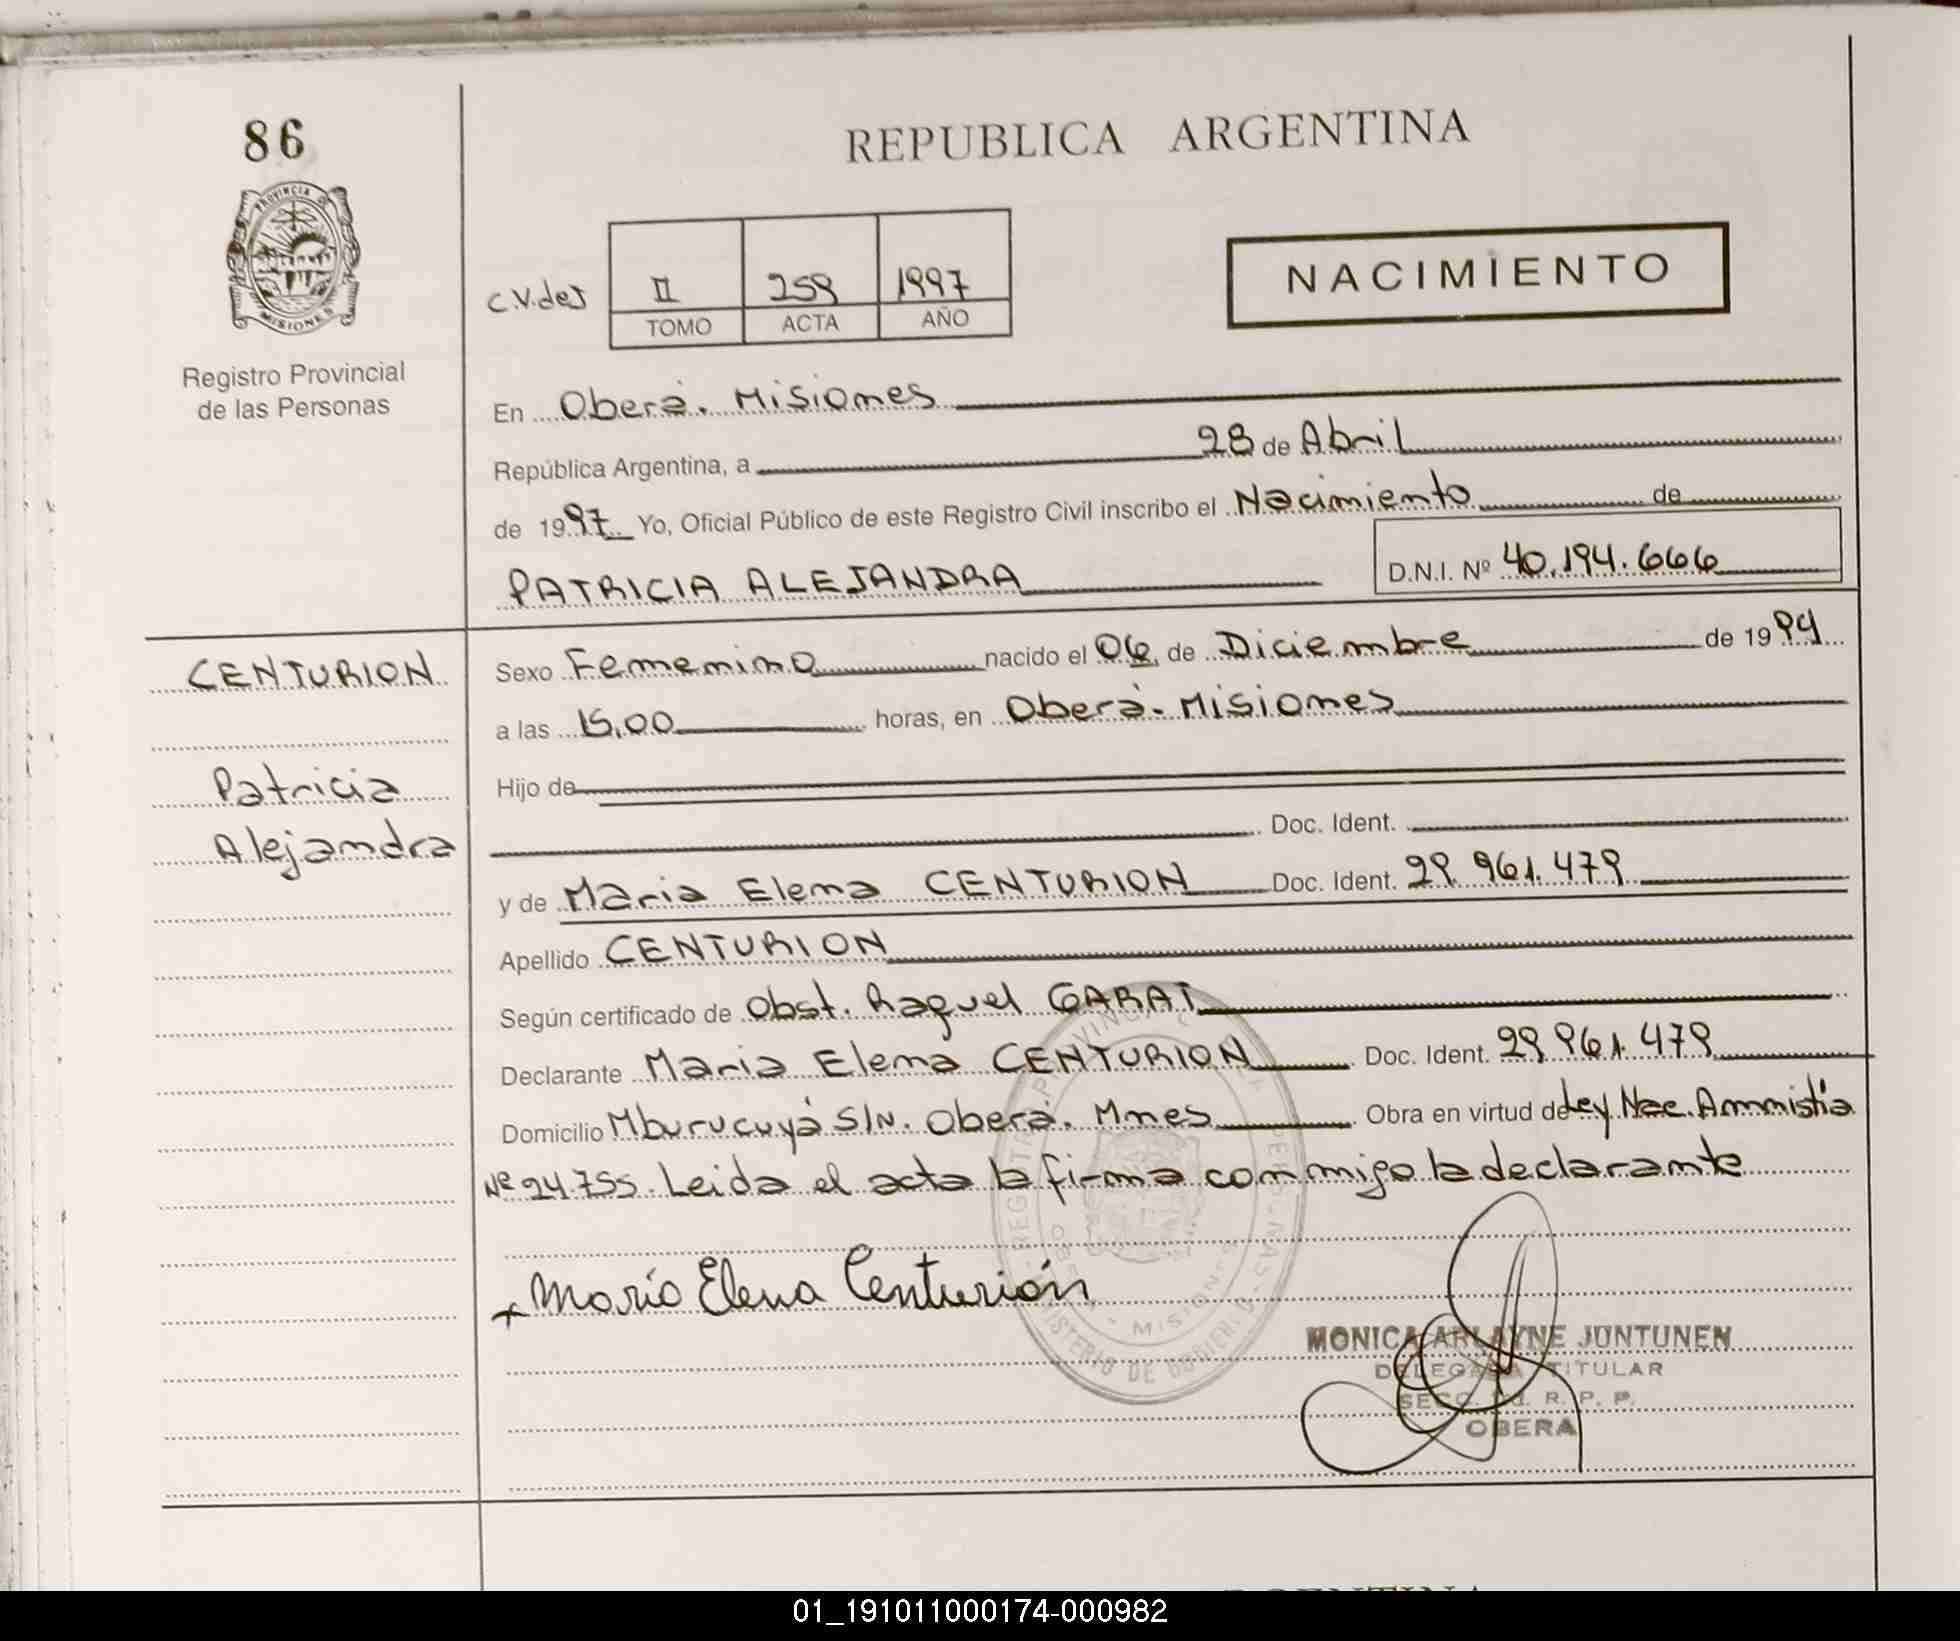 86
REPUBLICA ARGENTINA
PROVINCIA DE
MISIONES
Registro Provincial
de las Personas
C.V.des
II 259 1997
TOMO ACTA AÑO
NACIMIENTO
En Oberá. Misiones
República Argentina, a 28 de Abril
de 1997 Yo, Oficial Público de este Registro Civil inscribo el Nacimiento de
PATRICIA ALEJANDRA D.N.I. Nº 40.194.666
CENTURION
Patricia
Alejandra
Sexo Femenino nacido el 06 de Diciembre de 1994
a las 15,00 horas, en Oberá. Misiones
Hijo de
Doc. Ident.
y de Maria Elena CENTURION Doc. Ident. 29.961.479
Apellido CENTURION
Según certificado de Obst. Raquel GARAT
Declarante Maria Elena CENTURION Doc. Ident. 29.961.479
Domicilio Mburucuyá S/N. Oberá. Mnes Obra en virtud de Ley Nac. Amnistia
Nº 24.755. Leida el acta la firma conmigo la declarante
+ María Elena Centurión
MONICA ARLAYNE JUNTUNEN
DELEGADA TITULAR
SECC. R. P. P.
OBERA
MINISTERIO DE GOBIERNO
MISIONES
01_191011000174-000982